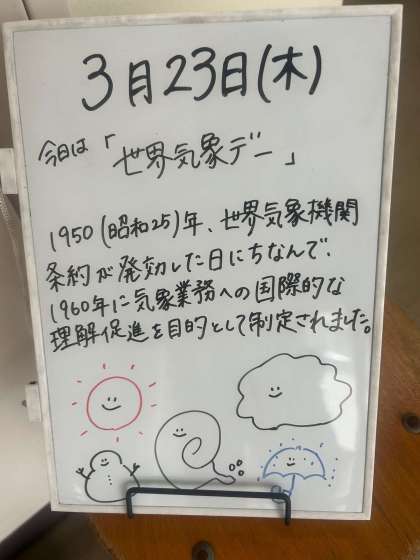 3月23日(木)
今日は「世界気象デー」
1950(昭和25)年、世界気象機関
条約が発効した日にちなんで、
1960年に気象業務への国際的な
理解促進を目的として制定されました。